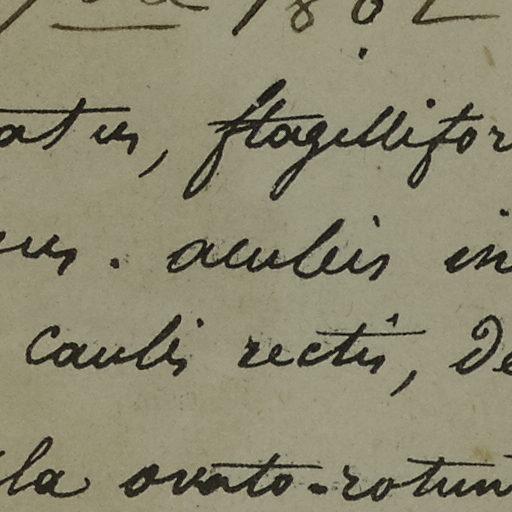 1882
atus, flagellifor
us. aculeis in
caulis rectis, de
la ovato-rotun